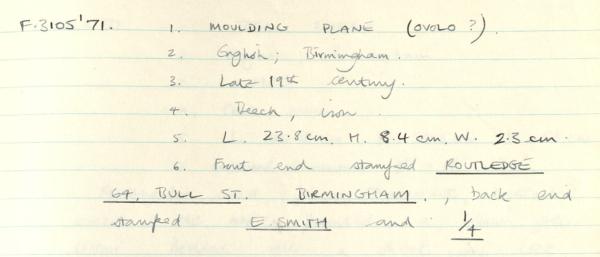 F.3105'71. 1. MOULDING PLANE (OVOLO ?).
2. English; Birmingham.
3. Late 19th century.
4. Beech, iron.
5. L. 23.8cm. H. 8.4 cm. W. 2.3 cm.
6. Front end stamped ROUTLEDGE
64, BULL ST. BIRMINGHAM., back end
stamped E. SMITH and 1/4